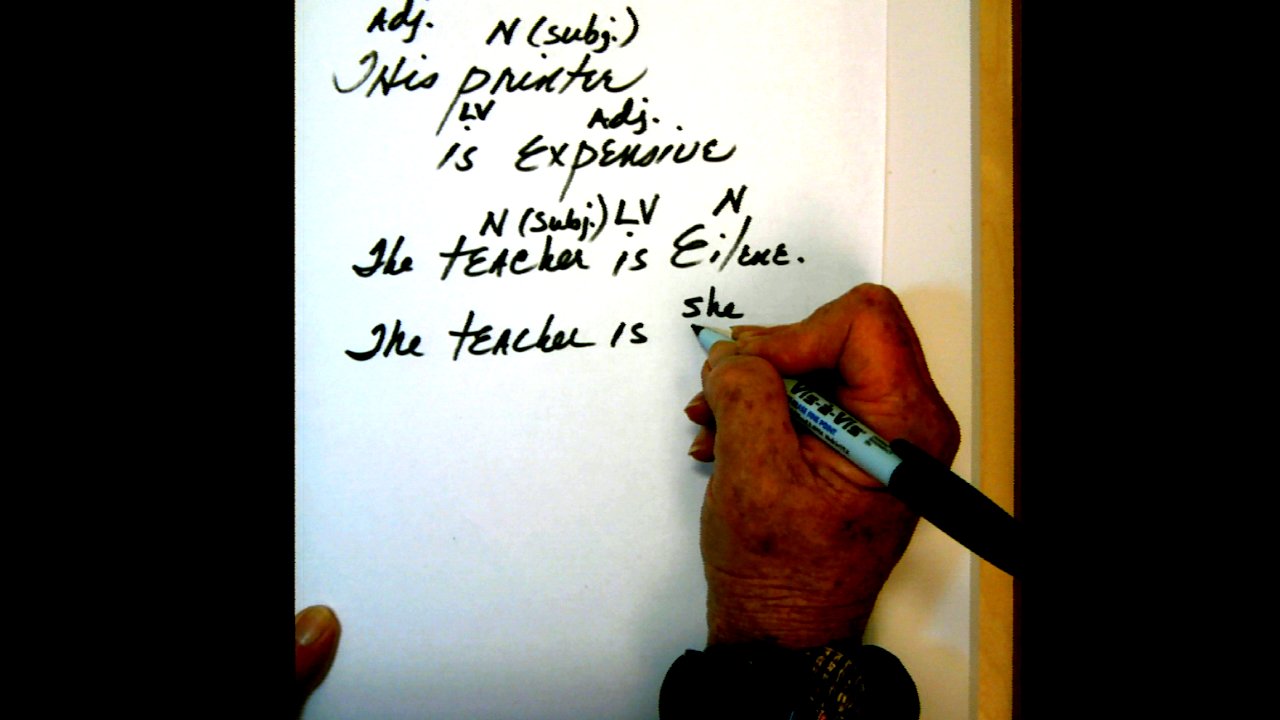 Adj. N (subj.)
This printer
LV Adj.
is Expensive
N (subj.) LV N
The teacher is Eilene.
she
The teacher is
VIS-À-VIS